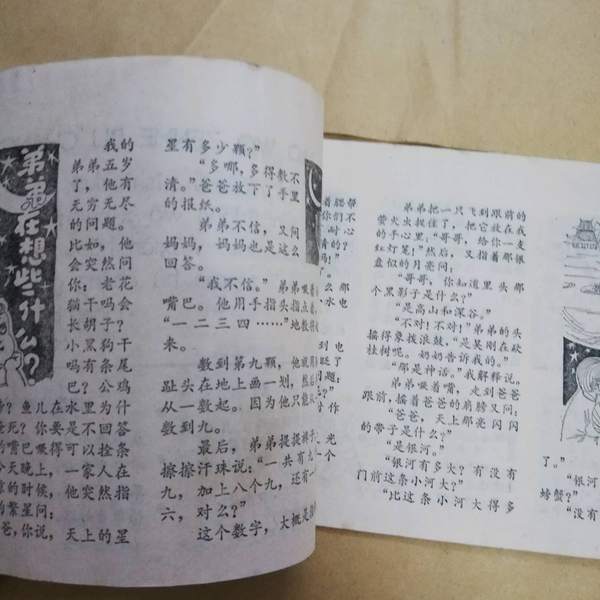 弟弟在想些什么?
我的
弟弟五岁
了，他有
无穷无尽
的问题。
比如，他
会突然问
你：老花
猫干吗会
长胡子?
小黑狗干
吗有条尾
巴? 公鸡
? 鱼儿在水里为什
死? 你要是不回答
的嘴巴噘得可以拴条
今天晚上，一家人在
的时候，他突然指
的繁星问：
爸，你说，天上的星
星有多少颗?”
“多哪，多得数不
清。”爸爸放下了手里
的报纸。
弟弟不信，又问
妈妈，妈妈也是这么
回答。
“我不信。”弟弟噘着
嘴巴。他用手指头指点着，
“一二三四……”地数将
来。
数到第九颗，他就用
趾头在地上画一划，然后
从一数起。因为他只能从
数到九。
最后，弟弟提提裤子，
擦擦汗珠说：“一共有九个
九，加上八个九，还有一
六，对么?”
这个数字，大概是
着聪帮
你们不
耐心
情的?
吗!
么那
水电
到电
题：
作
光
一个
弟弟把一只飞到跟前的
萤火虫捉住了，把它放在我
的手心里：“哥哥，给你一支
红灯笼!”然后，又指着那银
盘似的月亮问：
“哥哥，你知道里头那
个黑影子是什么?”
“是高山和深谷。”
“不对! 不对!”弟弟的头
摇得象拨浪鼓，“是吴刚在砍
桂树呢。奶奶告诉我的。”
“那是神话。”我解释说。
弟弟噘着嘴，走到爸爸
跟前，摇着爸爸的肩膀又问：
“爸爸，天上那亮闪闪
的带子是什么?”
“是银河。”
“银河有多大? 有没有
门前这条小河大?”
“比这条小河大得多
了。”
“银河
螃蟹?”
“没有